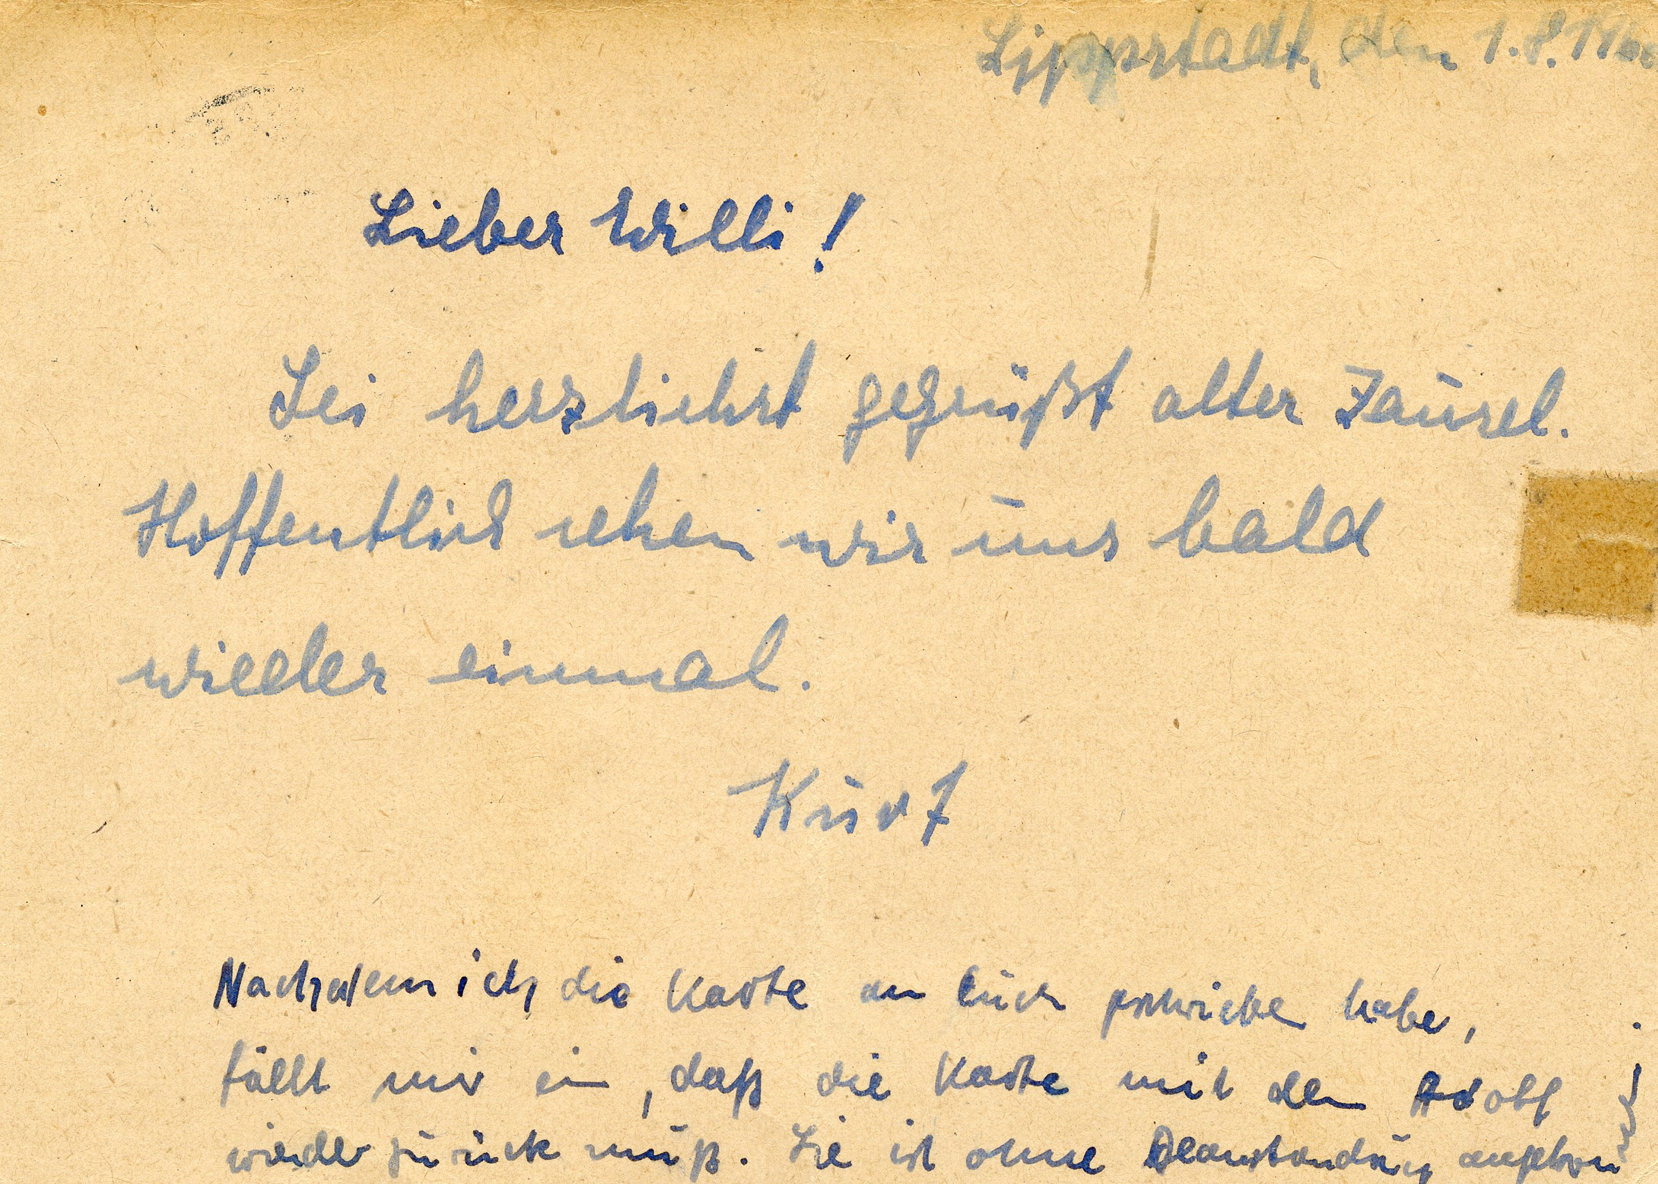 Lippstadt, den 1.8.19
Lieber Willi!
Sei herzlichst gegrüßt alter Zausel.
Hoffentlich sehen wir uns bald
wieder einmal.
Kurt
Nachdem ich die Karte an Euch geschrieben habe,
fällt mir ein, daß die Karte mit dem Adolf
wieder zurück muß. Sie ist ohne Beanstandung